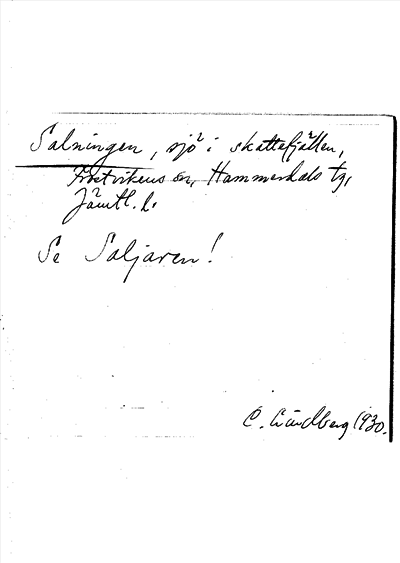 Salningen, sjö i skattefjällen,
Frostvikens sn, Hammerdals tg,
Jämtl. l.
Se Saljaren!
C. Lindberg 1930.